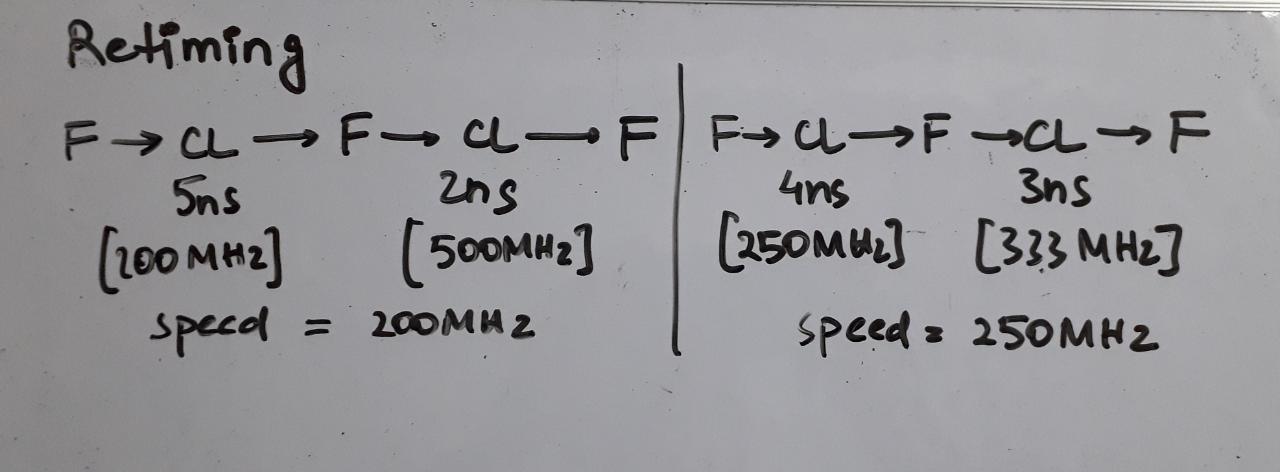 Retiming
F → CL → F → CL → F
5ns 2ns
[200MHz] [500MHz]
speed = 200MHz
F → CL → F → CL → F
4ns 3ns
[250MHz] [333MHz]
speed = 250MHz